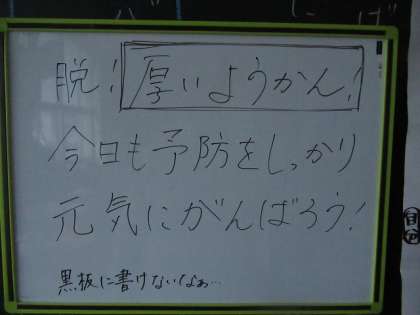 脱！厚いようかん！
今日も予防をしっかり
元気にがんばろう！
黒板に書けないなぁ…